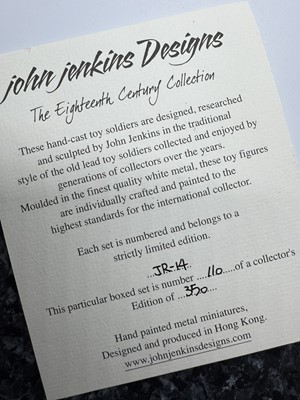 john jenkins Designs
The Eighteenth Century Collection
These hand-cast toy soldiers are designed, researched
and sculpted by John Jenkins in the traditional
style of the old lead toy soldiers collected and enjoyed by
generations of collectors over the years.
Moulded in the finest quality white metal, these toy figures
are individually crafted and painted to the
highest standards for the international collector.
Each set is numbered and belongs to a
strictly limited edition.
...JR-14..
This particular boxed set is number ....110.....of a collector's
Edition of ...350....
Hand painted metal miniatures,
Designed and produced in Hong Kong.
www.johnjenkinsdesigns.com